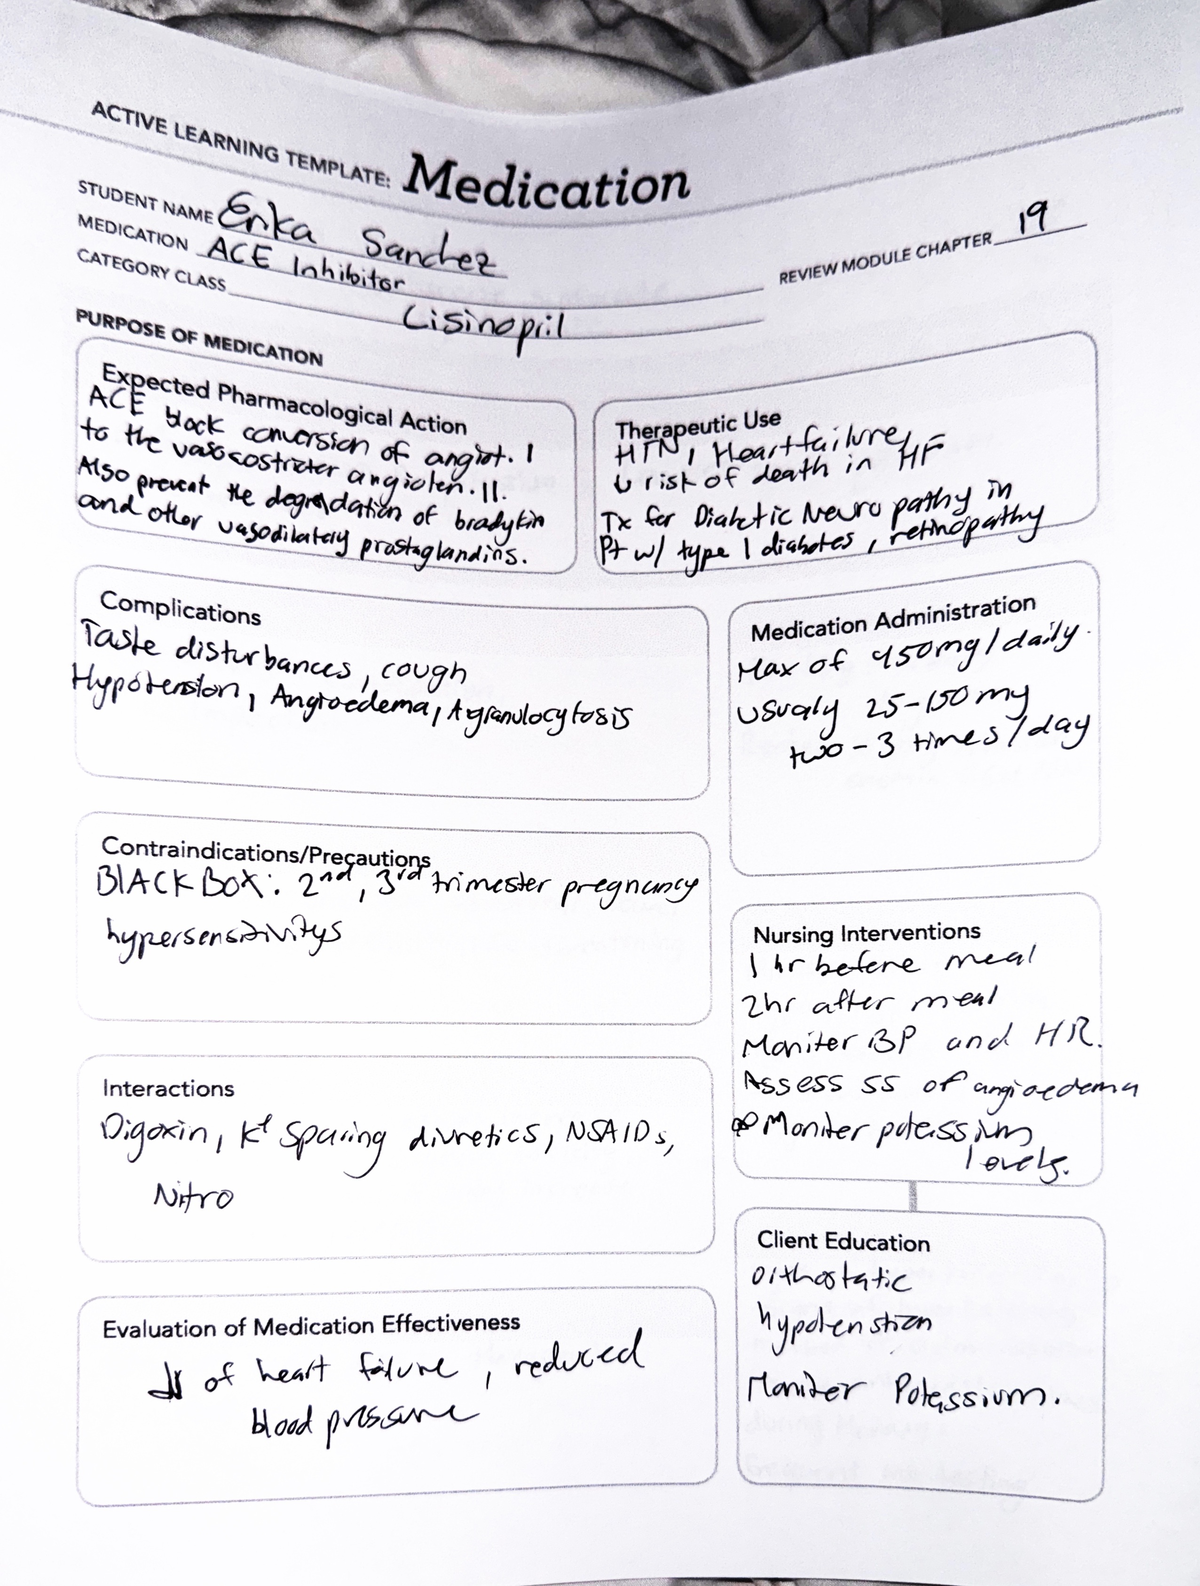 ACTIVE LEARNING TEMPLATE: Medication
STUDENT NAME Erika Sanchez
MEDICATION ACE Inhibitor
REVIEW MODULE CHAPTER 19
CATEGORY CLASS Lisinopril
PURPOSE OF MEDICATION
Expected Pharmacological Action
ACE block conversion of angiot. I
to the vasocostricter angioten. II.
Also prevent the degradation of bradykin
and other vasodilately prostaglandins.
Therapeutic Use
HTN, Heart failure,
↓ risk of death in HF
Tx for Diabetic Neuropathy in
Pt w/ type 1 diabetes, retinopathy
Complications
Taste disturbances, cough
Hypotension, Angioedema, Agranulocytosis
Medication Administration
Max of 450mg/daily.
usualy 25-150 mg
two-3 times/day
Contraindications/Precautions
BlACK BOX: 2nd, 3rd trimester pregnancy
hypersensitivitys
Nursing Interventions
1 hr before meal
2hr after meal
Moniter BP and HR.
Assess SS of angioedema
Moniter potassium
levels.
Interactions
Digoxin, K+ Sparing diuretics, NSAIDs,
Nitro
Client Education
Orthostatic
hypotenstion
Moniter Potassium.
Evaluation of Medication Effectiveness
↓ of heart failure, reduced
blood pressure